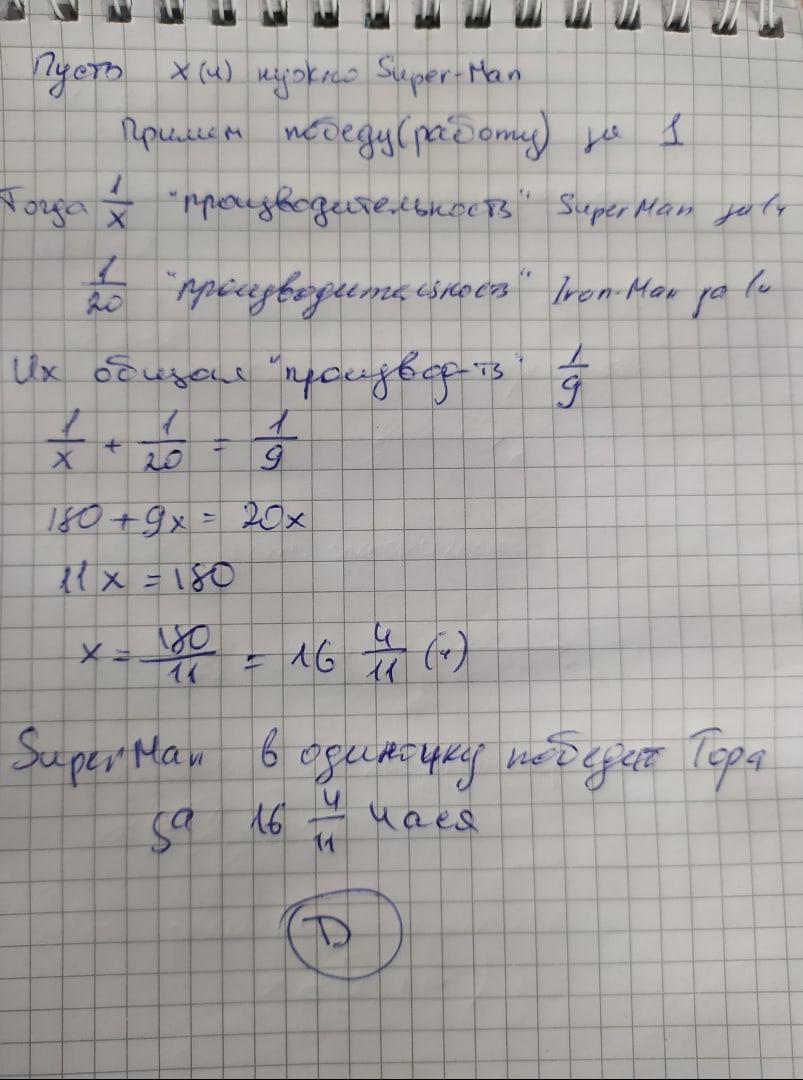 Пусть x(ч) нужно Super-Man
Примем победу(работу) за 1
Тогда 1/x "производительность" SuperMan за 1ч
1/20 "производительность" Iron-Man за 1ч
Их общая "производ-ть" 1/9
1/x + 1/20 = 1/9
180 + 9x = 20x
11x = 180
x = 180/11 = 16 4/11 (ч)
SuperMan в одиночку победит Тора
за 16 4/11 часа
D